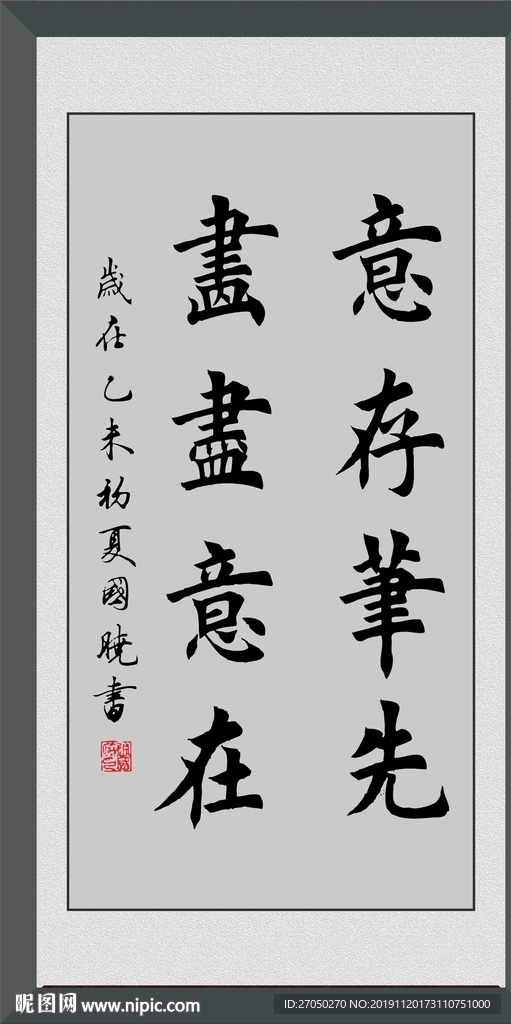 意存筆先
畵盡意在
歲在乙未初夏國曉書
昵图网 www.nipic.com
ID:27050270 NO:20191120173110751000